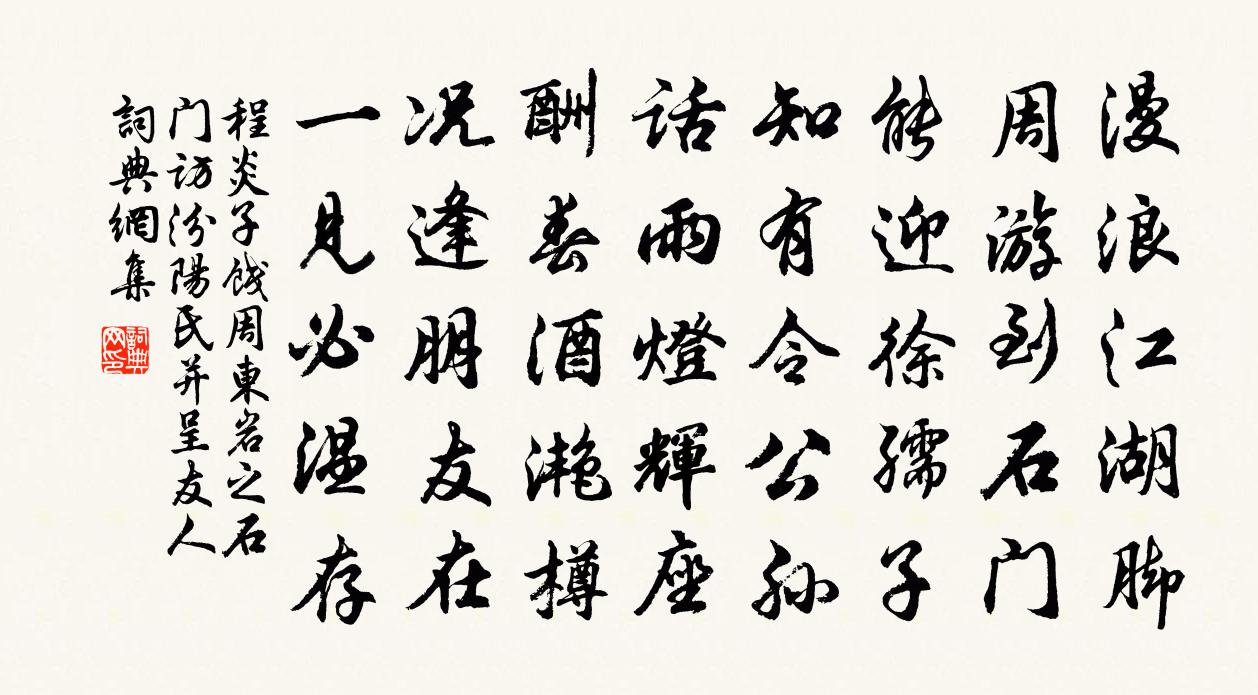 漫浪江湖脚
周游到石门
能迎徐孺子
知有令公孙
话雨燈輝座
酬春酒滟樽
况逢朋友在
一見必温存
程炎子餞周東岩之石
门访汾陽民并呈友人
詞典網集
詞典网印